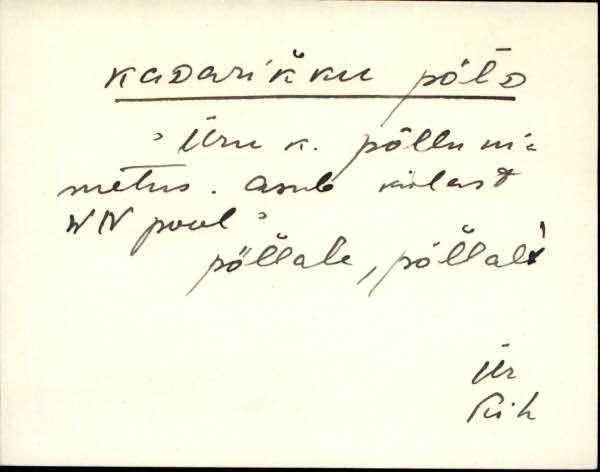 kaᴅariк̆ku põlᴅ
" Üru k. põllu ni-
metus. Asub külast
WN pool "
põl̆l̆ale, põl̆l̆al
Ür
Kih